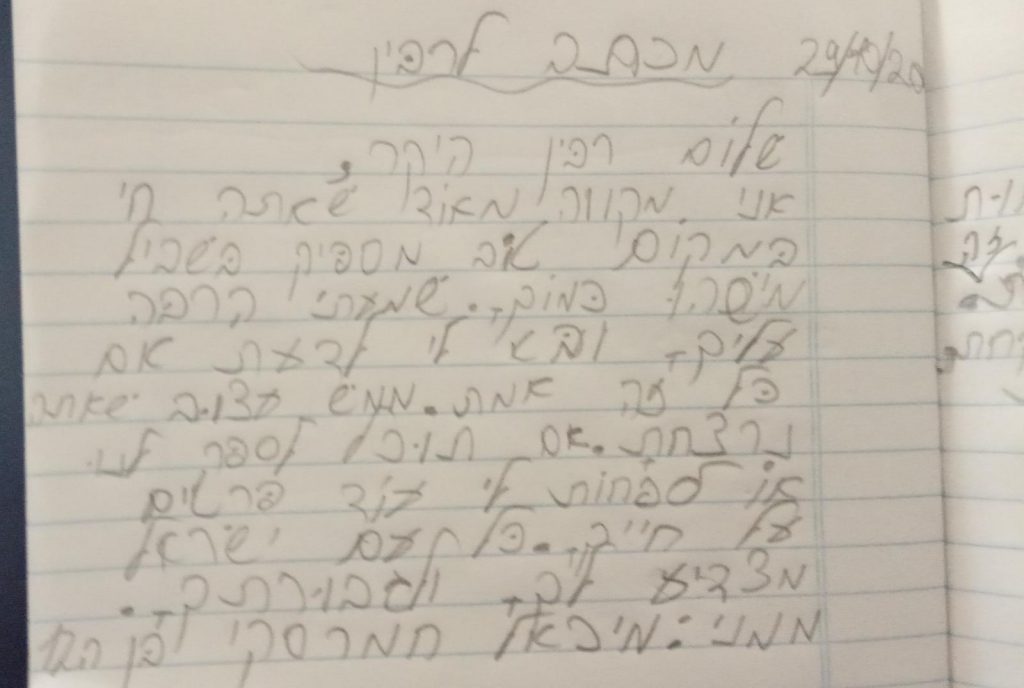 29/10/20 מכתב לרבין
שלום רבין היקר,
אני מקווה מאוד שאתה חי
במקום טוב מספיק בשביל
מישהו כמוך. שמעתי הרבה
עליך, ובא לי לדעת אם
כל זה אמת. ממש עצוב שאתה
נרצחת. אם תוכל לספר לנו
או לפחות לי עוד פרטים
על חייך. כל עם ישראל
מצדיע לך, ולגבורתך.
ממני: מיכאל תמרסקי בן ה